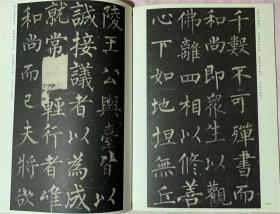 千數不可殫書而
和尚即眾生以觀
佛離四相以修善
心下如地坦無丘
陵王公輿臺皆以
誠接議者以為成
就常輕行者唯
和尚而已夫將欲